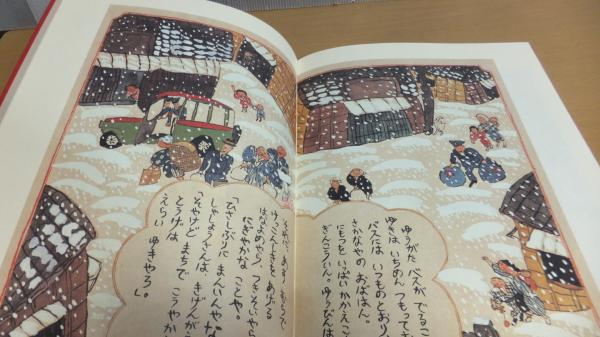 ゆうがた バスが でるこ
ゆきは いちめん つもってき
バスには いつものとおり、
さかなやの おばはん。
にもつを いっぱい かかえこ
ぎんこういん。ゆうびんは
あす むらで
けっこんしきを あげる
はなよめやら つきそいやら
にぎやかな ことや。
「ひさしぶりに まんいんやな
しゃしょうさんは きげんが
「そやけど まちで こうやか
とうげは
えらい ゆきやろ」。